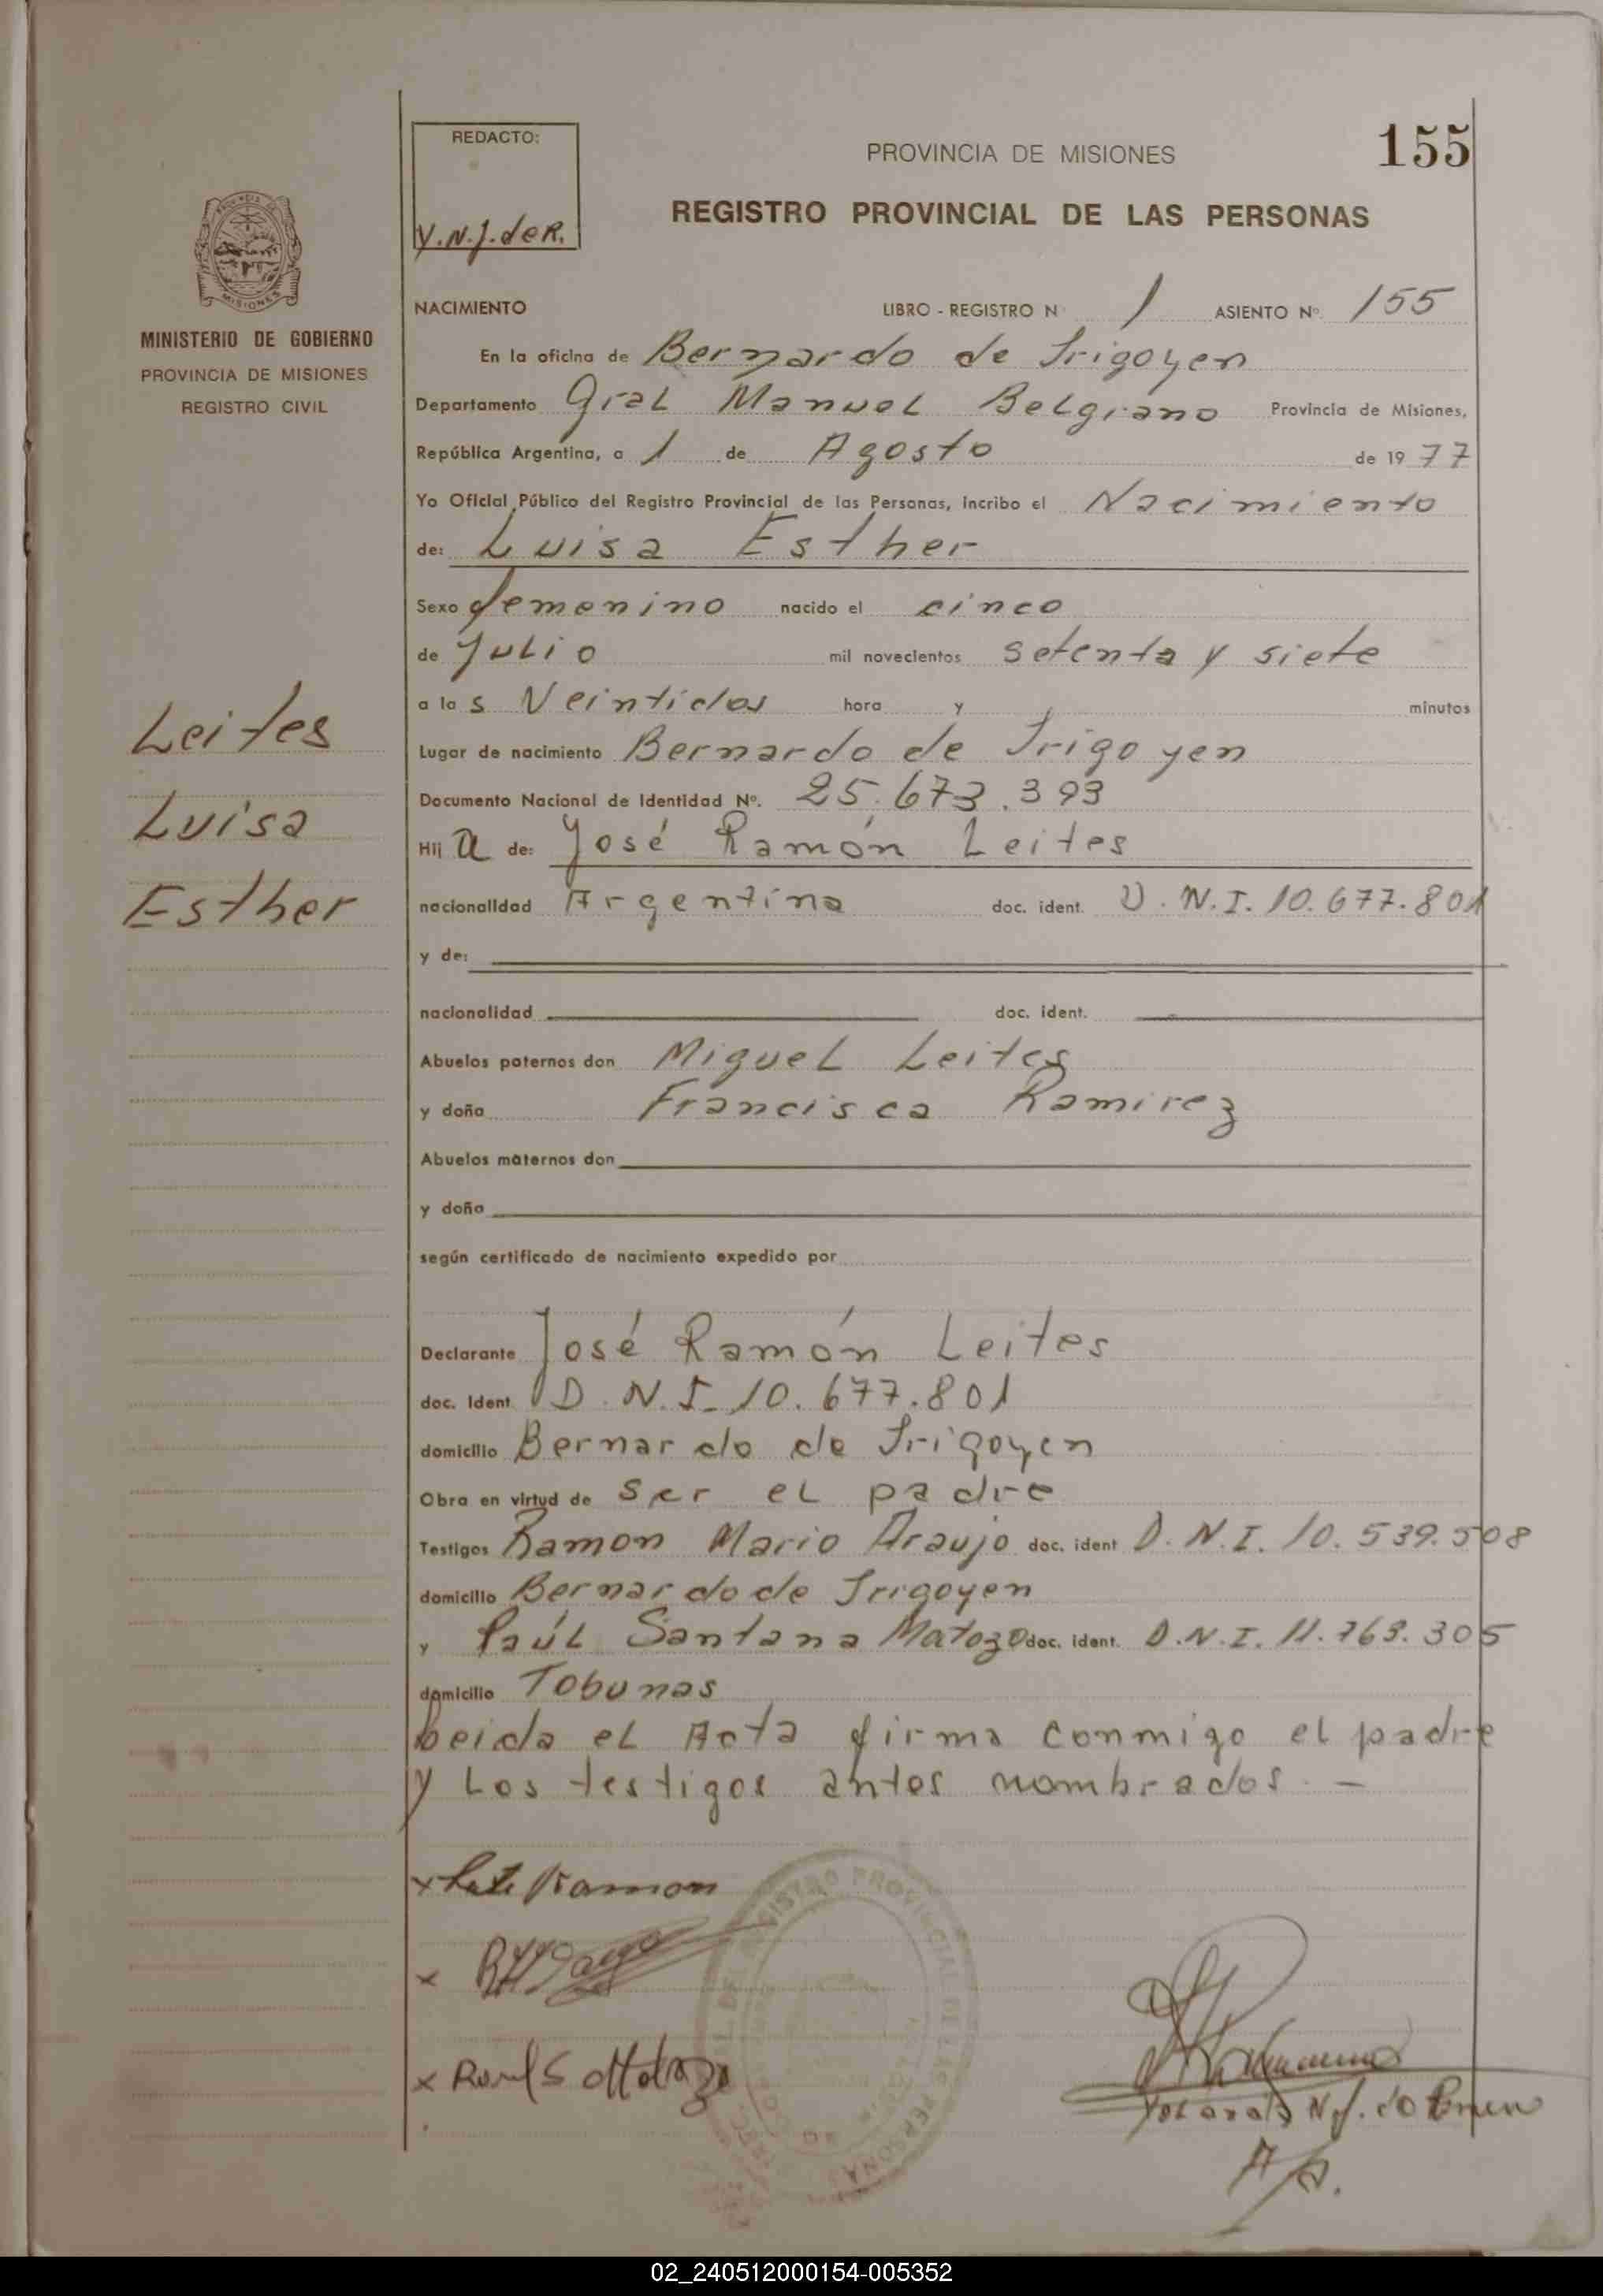 155
REDACTO:
Y.N.J. de R.
PROVINCIA DE MISIONES
REGISTRO PROVINCIAL DE LAS PERSONAS
MISIONES
MINISTERIO DE GOBIERNO
PROVINCIA DE MISIONES
REGISTRO CIVIL
NACIMIENTO LIBRO - REGISTRO Nº 1 ASIENTO Nº 155
En la oficina de Bernardo de Irigoyen
Departamento Gral Manuel Belgrano Provincia de Misiones,
República Argentina, a 1 de Agosto de 19 77
Yo Oficial Público del Registro Provincial de las Personas, incribo el Nacimiento
de: Luisa Esther
Sexo femenino nacido el cinco
de Julio mil novecientos setenta y siete
a las Veintidos hora y minutos
Lugar de nacimiento Bernardo de Irigoyen
Documento Nacional de Identidad Nº. 25.673.393
Hij a de: José Ramón Leites
nacionalidad Argentina doc. ident. D.N.I. 10.677.801
y de:
nacionalidad doc. ident.
Abuelos paternos don Miguel Leites
y doña Francisca Ramirez
Abuelos maternos don
y doña
según certificado de nacimiento expedido por
Declarante José Ramón Leites
doc. ident D.N.I. 10.677.801
domicilio Bernardo de Irigoyen
Obra en virtud de ser el padre
Testigos Ramon Mario Araujo doc. ident D.N.I. 10.539.508
domicilio Bernardo de Irigoyen
y Raúl Santana Matozo doc. ident. D.N.I. 11.763.305
domicilio Tobunas
Leida el Acta firma conmigo el padre
y Los testigos antes nombrados. —
Leites
Luisa
Esther
x Ramon
x
x Raul S Matozo
REGISTRO PROVINCIAL DE LAS PERSONAS
02_240512000154-005352